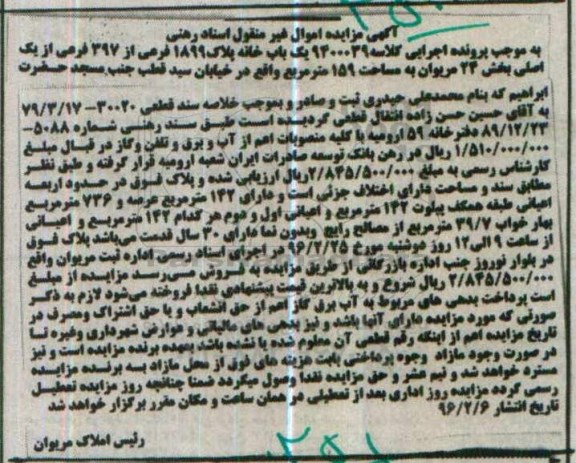 آگهی مزایده اموال غیر منقول اسناد رهنی
به موجب پرونده اجرایی کلاسه ۹۳۰۰۰۳۹ یک باب خانه پلاک ۱۸۹۹ فرعی از ۳۹۷ فرعی از یک
اصلی بخش ۲۳ مریوان به مساحت ۱۵۹ مترمربع واقع در خیابان سید قطب جنب مسجد حضرت
ابراهیم که بنام محمدعلی حیدری ثبت و صادر و بموجب خلاصه سند قطعی ۳۰۰۲۰-۷۹/۳/۱۷
به آقای حسین حسن زاده انتقال قطعی گردیده است طبق سند رهنی شماره ۵۰۸۸-
۸۹/۱۲/۲۳ دفترخانه ۵۹ ارومیه با کلیه منصوبات اهم از آب و برق و تلفن وگاز در قبال مبلغ
۱/۵۱۰/۰۰۰/۰۰۰ ریال در رهن بانک توسعه صادرات ایران شعبه ارومیه قرار گرفته و طبق نظر
کارشناس رسمی به مبلغ ۲/۸۴۵/۵۰۰/۰۰۰ریال ارزیابی شده و پلاک فوق در حدود اربعه
مطابق سند و مساحت دارای اختلاف جزئی است و دارای ۱۴۲ مترمربع عرصه و ۷۳۶ مترمربع
اعیانی طبقه همکف پیلوت ۱۴۲ مترمربع و اعیانی اول و دوم هر کدام ۱۴۲ مترمربع و اعیانی
بهار خواب ۳۹/۷ مترمربع از مصالح رایج وبدون نما دارای ۳۰ سال قدمت می‌باشد پلاک فوق
از ساعت ۹ الی ۱۲ روز دوشنبه مورخ ۹۶/۲/۲۵ در اجرای اسناد رسمی اداره ثبت مریوان واقع
در بلوار نوروز جنب اداره بازرگانی از طریق مزایده به فروش می‌رسد مزایده از مبلغ
۲/۸۴۵/۵۰۰/۰۰۰ ریال شروع و به بالاترین قیمت پیشنهادی نقدا فروخته می‌شود لازم به ذکر
است پرداخت بدهی های مربوط به آب برق گاز اهم از حق انشعاب و یا حق اشتراک ومصرف در
صورتی که مورد مزایده دارای آنها باشد و نیز بدهی های مالیاتی و عوارض شهرداری وغیره تا
تاریخ مزایده اهم از اینکه رقم قطعی آن معلوم شده یا نشده باشد بعهده برنده مزایده است و نیز
در صورت وجود مازاد وجوه پرداختی بابت هزینه های فوق از محل مازاد به برنده مزایده
مسترد خواهد شد و نیم عشر و حق مزایده نقدا وصول میگردد ضمنا چنانچه روز مزایده تعطیل
رسمی گردد مزایده روز اداری بعد از تعطیلی در همان ساعت و مکان مقرر برگزار خواهد شد
تاریخ انتشار ۹۶/۲/۶
رئیس املاک مریوان